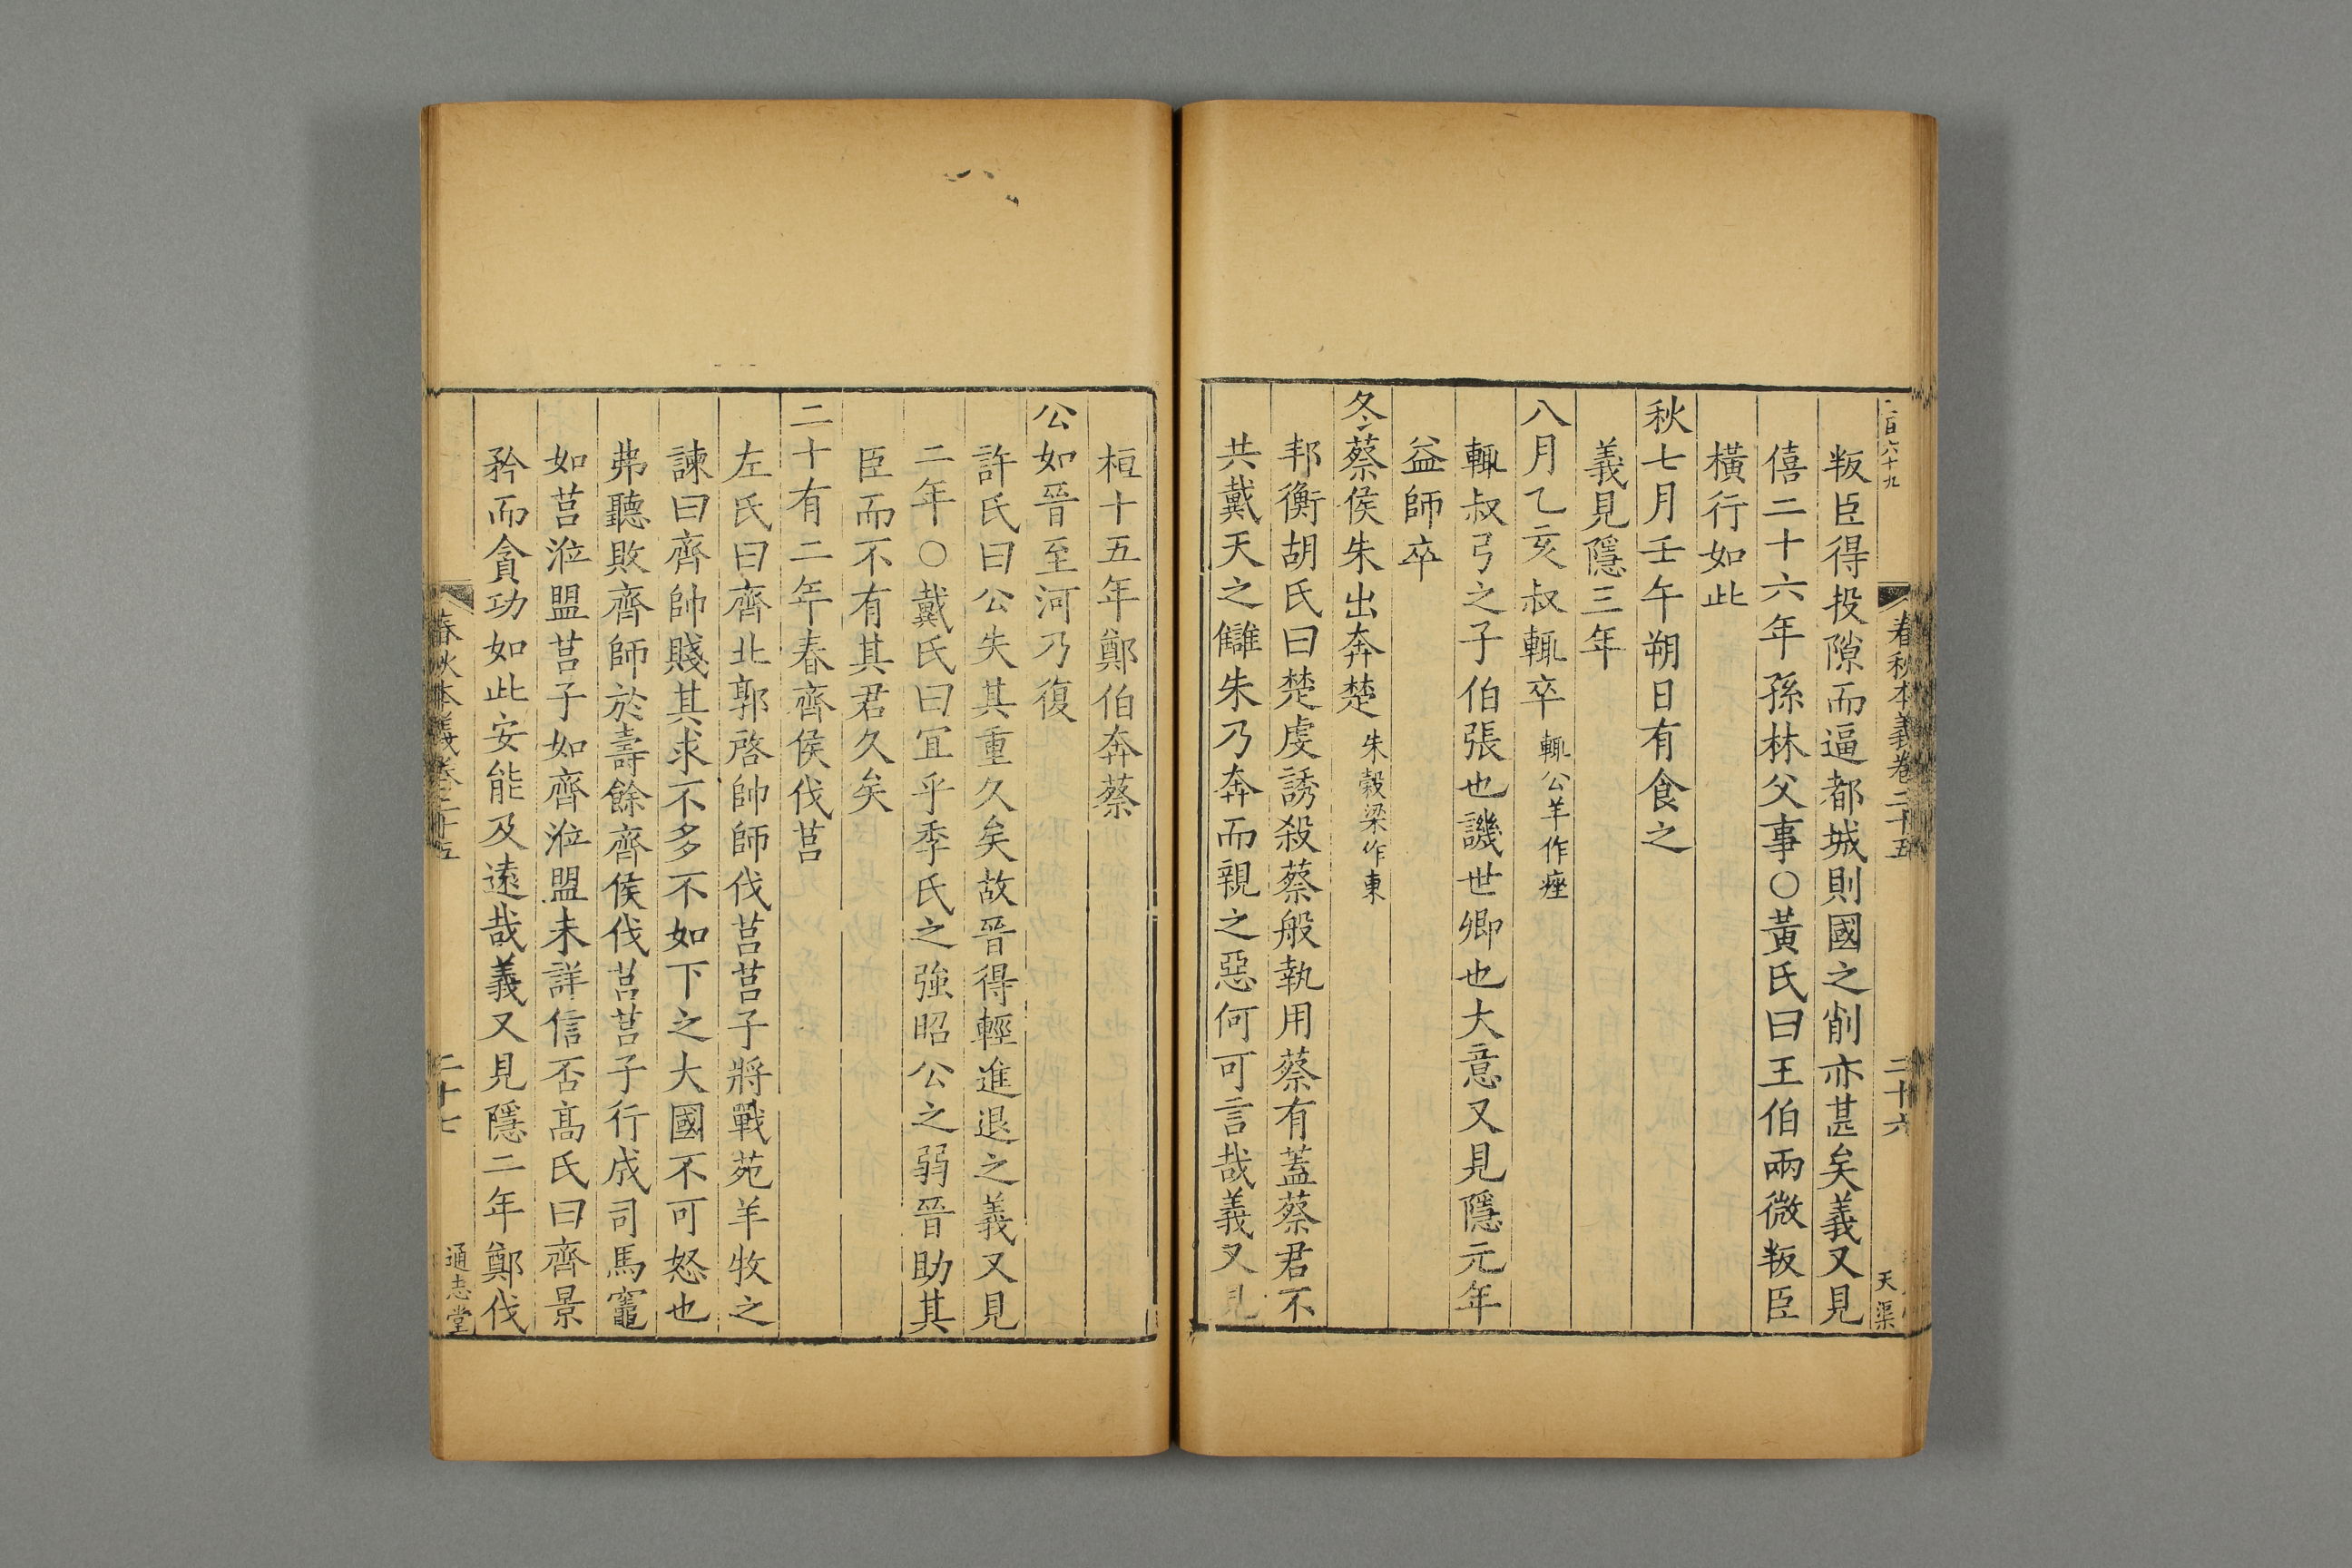 百六十九 春秋本義卷二十五 二十六 天渠
叛臣得投隙而逼都城則國之削亦甚矣義又見
僖二十六年孫林父事○黃氏曰王伯兩微叛臣
橫行如此
秋七月壬午朔日有食之
義見隱三年
八月乙亥叔輒卒輒公羊作痤
輒叔弓之子伯張也譏世卿也大意又見隱元年
益師卒
冬蔡侯朱出奔楚朱穀梁作東
邦衡胡氏曰楚虔誘殺蔡般執用蔡有蓋蔡君不
共戴天之讎朱乃奔而親之惡何可言哉義又見
桓十五年鄭伯奔蔡
公如晉至河乃復
許氏曰公失其重久矣故晉得輕進退之義又見
二年○戴氏曰宜乎季氏之強昭公之弱晉助其
臣而不有其君久矣
二十有二年春齊侯伐莒
左氏曰齊北郭啓帥師伐莒莒子將戰苑羊牧之
諫曰齊帥賤其求不多不如下之大國不可怒也
弗聽敗齊師於壽餘齊侯伐莒莒子行成司馬竈
如莒涖盟莒子如齊涖盟未詳信否高氏曰齊景
矜而貪功如此安能及遠哉義又見隱二年鄭伐
春秋本義卷二十五 二十七 通志堂